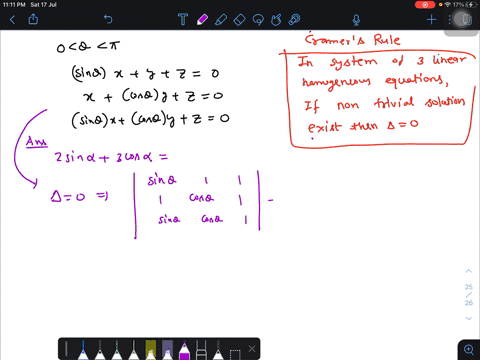 11:11 PM Sat 17 Jul
17%
0 < θ < π
(sinθ) x + y + z = 0
x + (cosθ) y + z = 0
(sinθ) x + (cosθ) y + z = 0
Ans
2 sinα + 3 cosα =
Δ = 0 ⇒
sinθ 1 1
1 cosθ 1
sinθ cosθ 1
-
Cramer's Rule
In system of 3 linear
homogeneous equations,
If non trivial solution
exist then Δ = 0
25
/
26